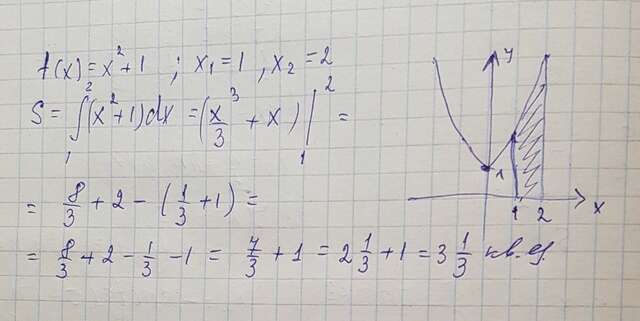 f(x) = x² + 1 ; x₁ = 1, x₂ = 2
S = ∫₁² (x² + 1) dx = (x³/3 + x) |₁² =
= 8/3 + 2 - (1/3 + 1) =
= 8/3 + 2 - 1/3 - 1 = 7/3 + 1 = 2 1/3 + 1 = 3 1/3 кв. ед.
y
1
1 2 x